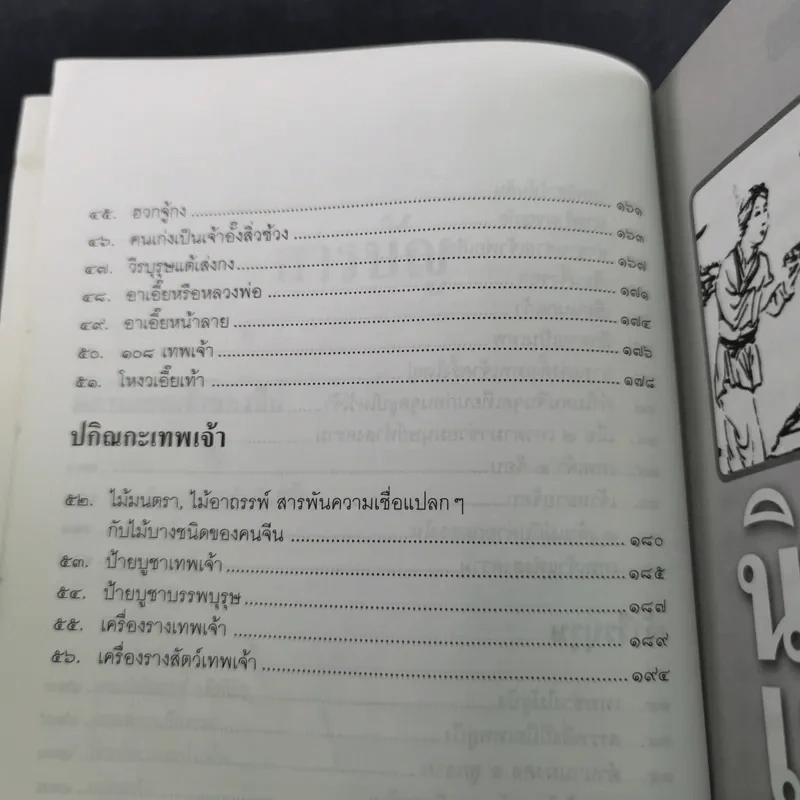 ๔๕. ฮวกจู้กง ๑๖๑
๔๖. คนเก่งเป็นเจ้าอั้งสิ่วช้วง ๑๖๓
๔๗. วีรบุรุษแต้เส่งกง ๑๖๗
๔๘. อาเอี๊ยหรือหลวงพ่อ ๑๗๑
๔๙. อาเอี๊ยหน้าลาย ๑๗๔
๕๐. ๑๐๘ เทพเจ้า ๑๗๖
๕๑. โหงวเอี๊ยเท้า ๑๗๘
ปกิณกะเทพเจ้า
๕๒. ไม้มนตรา, ไม้อาถรรพ์ สารพันความเชื่อแปลก ๆ
กับไม้บางชนิดของคนจีน ๑๘๐
๕๓. ป้ายบูชาเทพเจ้า ๑๘๕
๕๔. ป้ายบูชาบรรพบุรุษ ๑๘๗
๕๕. เครื่องรางเทพเจ้า ๑๘๙
๕๖. เครื่องรางสัตว์เทพเจ้า ๑๙๔